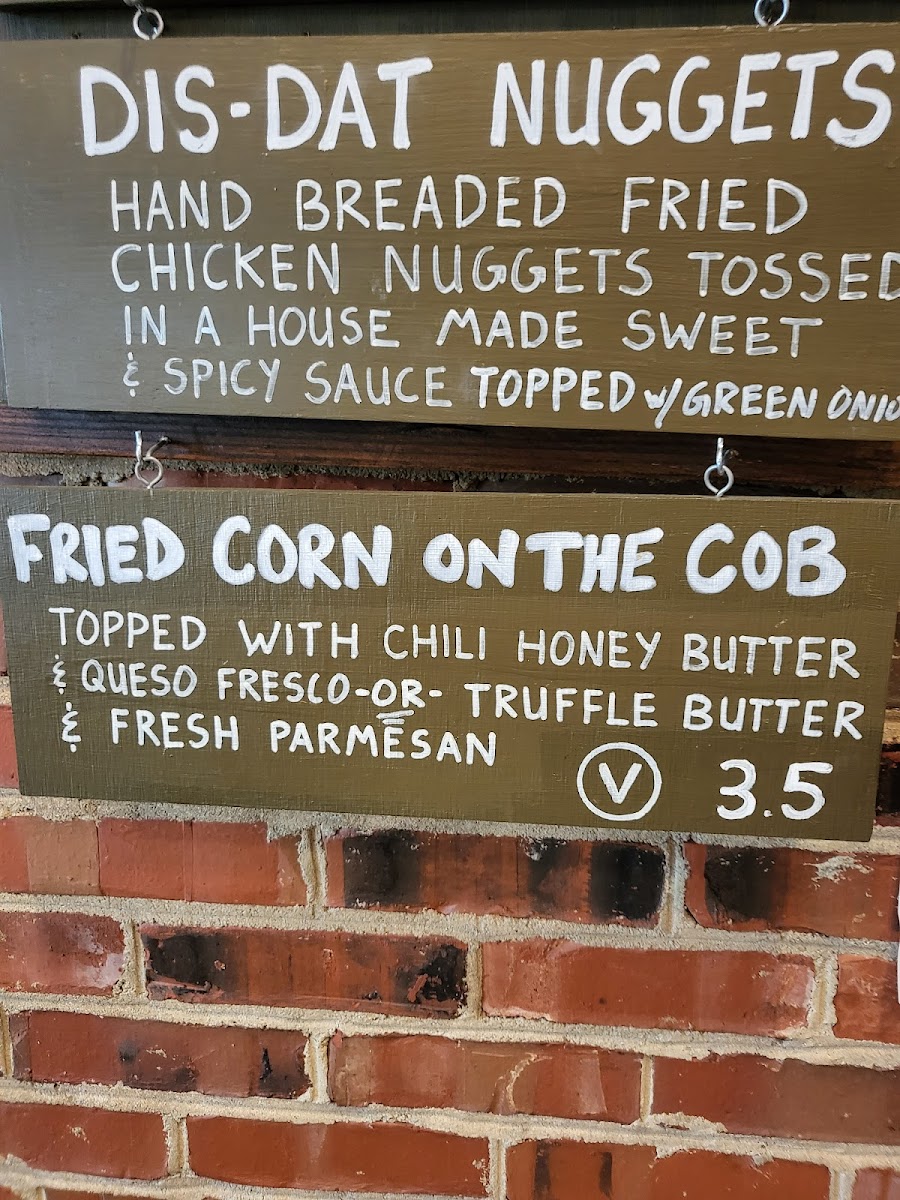 DIS-DAT NUGGETS
HAND BREADED FRIED
CHICKEN NUGGETS TOSSED
IN A HOUSE MADE SWEET
& SPICY SAUCE TOPPED w/GREEN ONIO
FRIED CORN ON THE COB
TOPPED WITH CHILI HONEY BUTTER
& QUESO FRESCO-OR- TRUFFLE BUTTER
& FRESH PARMESAN
V 3.5